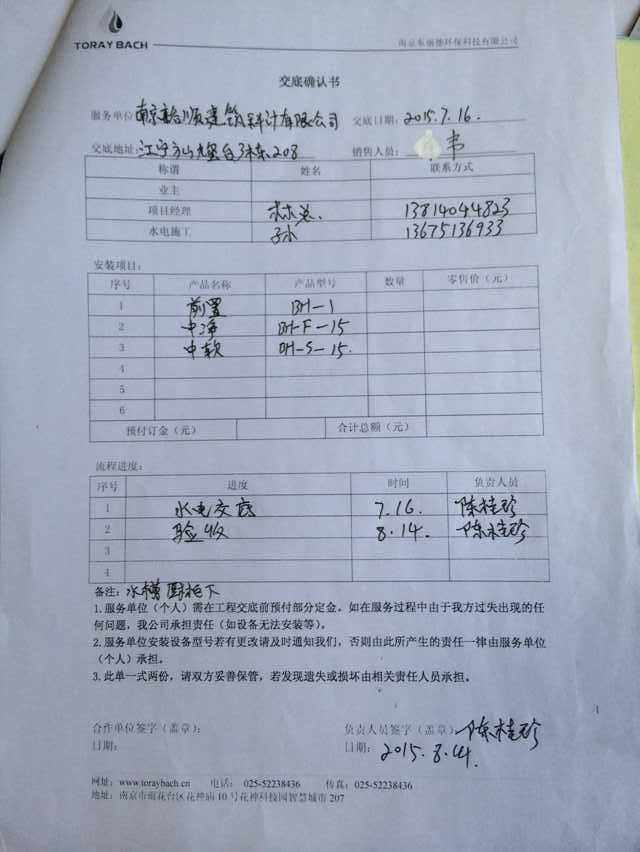 TORAY BACH
南京东丽德环保科技有限公司
交底确认书
服务单位 南京 顺建筑设计有限公司 交底日期: 2015.7.16.
交底地址: 江宁方山 栋208 销售人员: 韦
称谓 姓名 联系方式
业主
项目经理 林总. 13814044823
水电施工 孙 13675136933
安装项目:
序号 产品名称 产品型号 数量 零售价(元)
1 前置 BH-1
2 中净 BH-F-15
3 中软 BH-S-15.
4
5
6
预付订金(元) 合计总额(元)
流程进度:
序号 进度 时间 负责人员
1 水电交底 7.16. 陈桂珍
2 验收 8.14. 陈桂珍
3
4
备注: 水槽厨柜下
1.服务单位(个人)需在工程交底前预付部分定金。如在服务过程中由于我方过失出现的任
何问题,我公司承担责任(如设备无法安装等)。
2.服务单位安装设备型号若有更改请及时通知我们,否则由此所产生的责任一律由服务单位
(个人)承担。
3.此单一式两份,请双方妥善保管,若发现遗失或损坏由相关责任人员承担。
合作单位签字(盖章): 负责人员签字(盖章) 陈桂珍
日期: 日期: 2015.8.14.
网址: www.toraybach.cn 电话: 025-52238436 传真: 025-52238436
地址: 南京市雨花台区花神庙10号花神科技园智慧城市207